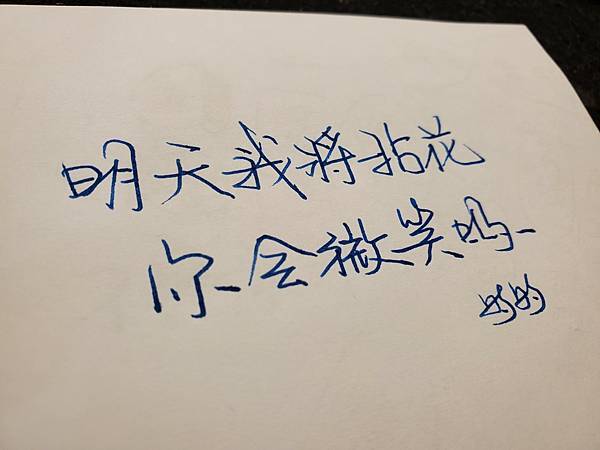 明天我将拈花
你会微笑吗